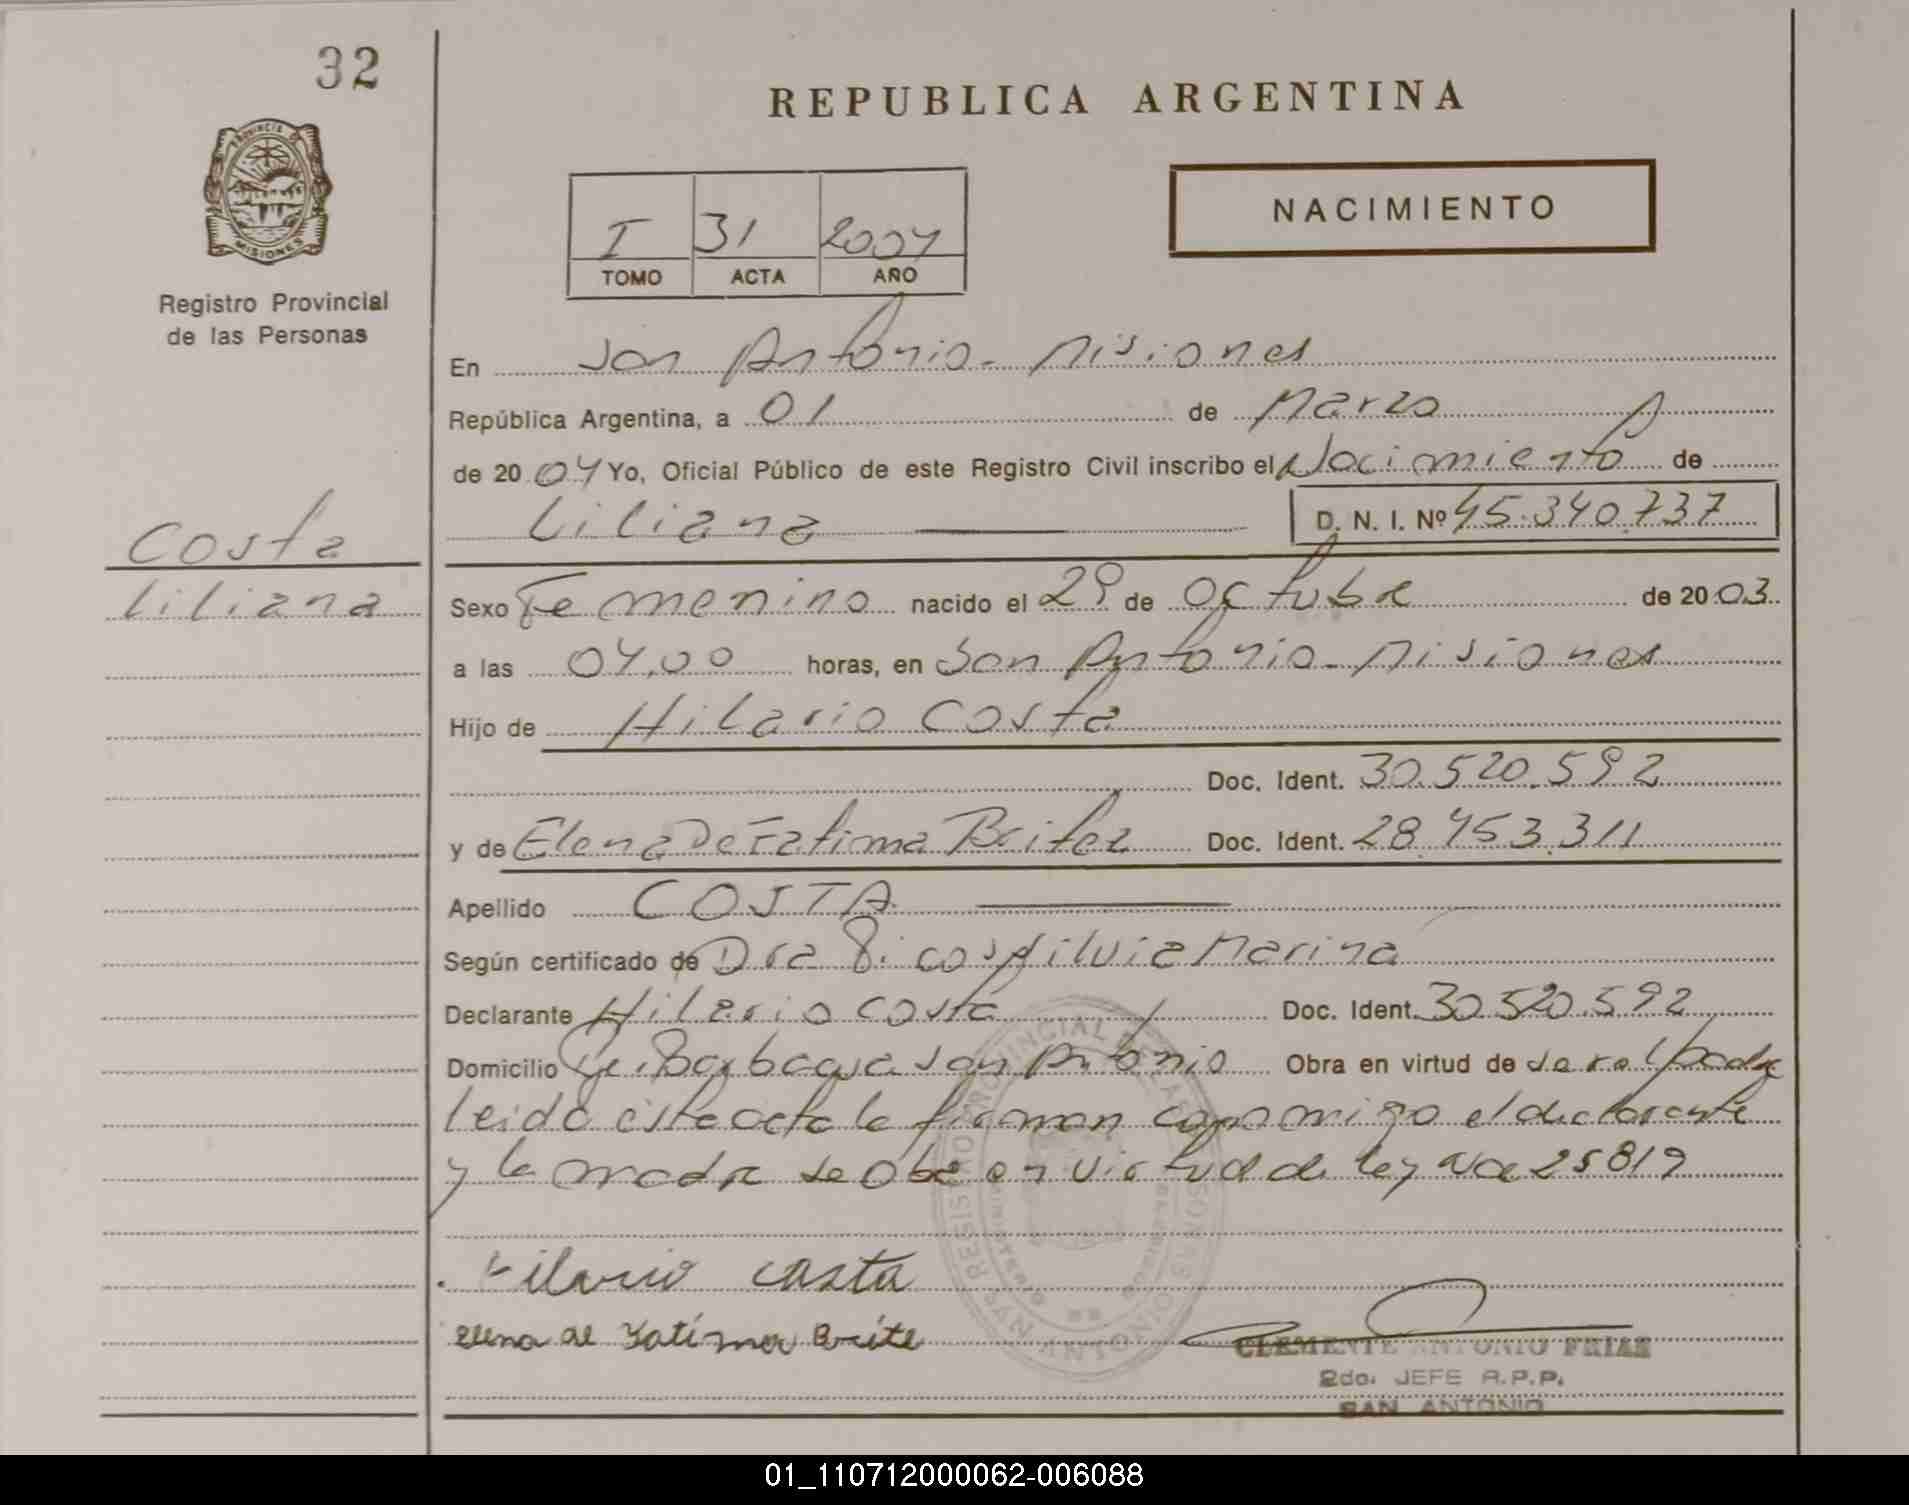 32
REPUBLICA ARGENTINA
PROVINCIA DE MISIONES
Registro Provincial
de las Personas
NACIMIENTO
I 31 2004
TOMO ACTA AÑO
En San Antonio - Misiones
República Argentina, a 01 de Marzo
de 2004 Yo, Oficial Público de este Registro Civil inscribo el Nacimiento de
Liliana D. N. I. Nº 45.340.737
Costa
Liliana
Sexo Femenino nacido el 29 de Octubre de 2003
a las 04,00 horas, en San Antonio - Misiones
Hijo de Hilario Costa
Doc. Ident. 30.520.592
y de Elena De Fatima Britez Doc. Ident. 28.453.311
Apellido COSTA
Según certificado de Dra Silvia Marina
Declarante Hilario Costa Doc. Ident. 30.520.592
Domicilio San Antonio Obra en virtud de ser el padre
leida este acta la firman conmigo el declarante
y la madre se obra en virtud de ley 25819
Hilario Costa
Elena de Fatima Brite
CLEMENTE ANTONIO FRIAS
2do. JEFE R.P.P.
SAN ANTONIO
01_110712000062-006088